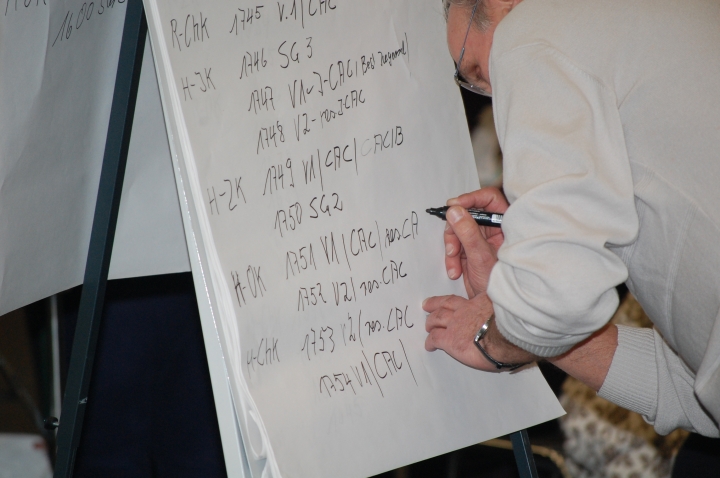 1600
R-ChK 1745 V.1/CAC
H-JK 1746 SG 3
1747 V1-J-CAC/
1748 V2-res.J.CAC
H-ZK 1749 V1/CAC/CACIB
1750 SG2
H-OK 1751 V1/CAC/res.CA
1752 V2/res.CAC
H-ChK 1753 V2/res.CAC
1754 V1/CAC/